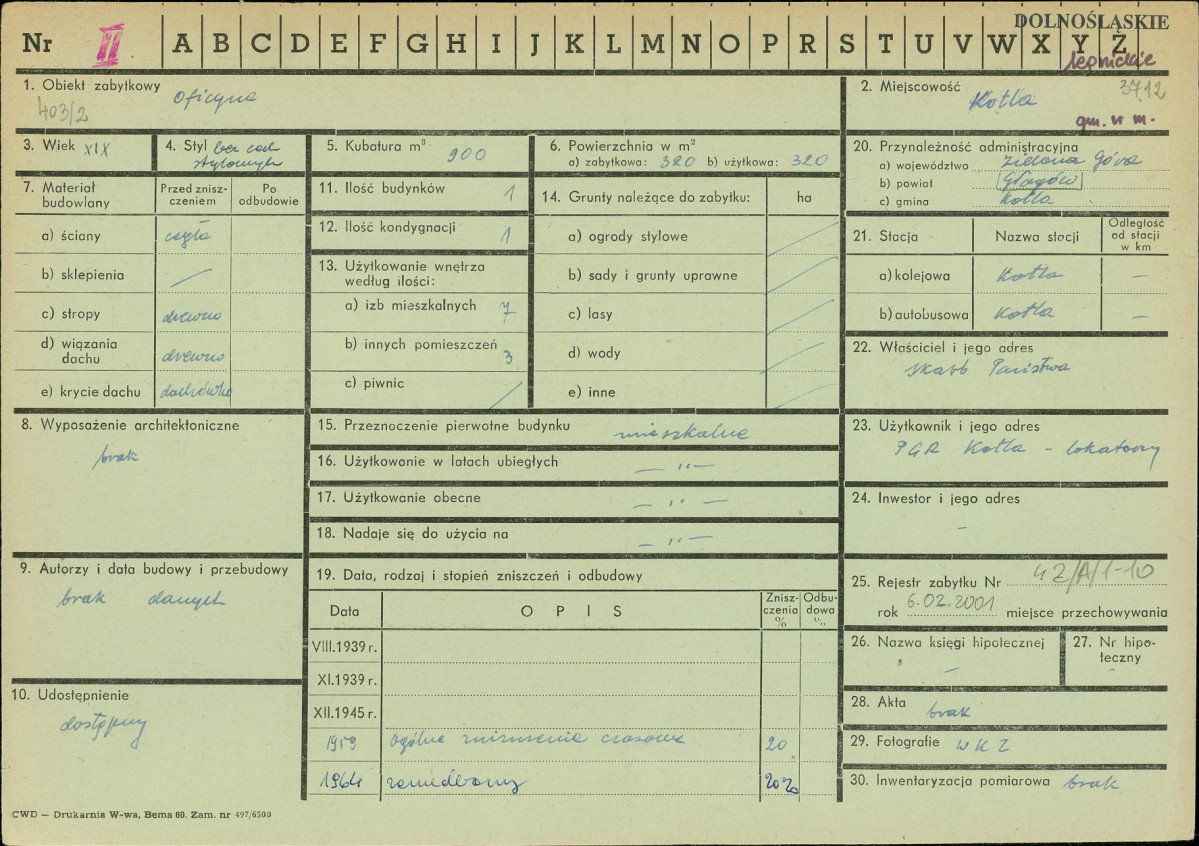 DOLNOŚLĄSKIE
Nr II A B C D E F G H I J K L M N O P R S T U V W X Y Z
legnickie
1. Obiekt zabytkowy Oficyna
403/2
2. Miejscowość Kotla 3712
gm. w m.
3. Wiek XIX
4. Styl bez cech stylowych
5. Kubatura m³ 900
6. Powierzchnia w m²
a) zabytkowa: 320 b) użytkowa: 320
7. Materiał budowlany
Przed zniszczeniem
Po odbudowie
a) ściany cegła
b) sklepienia —
c) stropy drewno
d) wiązania dachu drewno
e) krycie dachu dachówka
8. Wyposażenie architektoniczne
brak
9. Autorzy i data budowy i przebudowy
brak danych
10. Udostępnienie
dostępny
11. Ilość budynków 1
12. Ilość kondygnacji 1
13. Użytkowanie wnętrza według ilości:
a) izb mieszkalnych 7
b) innych pomieszczeń 3
c) piwnic /
14. Grunty należące do zabytku: ha
a) ogrody stylowe
b) sady i grunty uprawne
c) lasy
d) wody
e) inne
15. Przeznoczenie pierwotne budynku mieszkalne
16. Użytkowanie w latach ubiegłych — " —
17. Użytkowanie obecne — " —
18. Nadaje się do użycia na — " —
19. Data, rodzaj i stopień zniszczeń i odbudowy
Data OPIS Zniszczenia % Odbudowa %
VIII.1939 r.
XI.1939 r.
XII.1945 r.
1959 ogólne zniszczenia czasowe 20
1964 zaniedbany 20%
20. Przynależność administracyjna
a) województwo Zielona Góra
b) powiat Głogów
c) gmina Kotla
21. Stacja Nazwa stacji Odległość od stacji w km
a) kolejowa Kotla —
b) autobusowa Kotla —
22. Właściciel i jego adres
skarb Państwa
23. Użytkownik i jego adres
PGR Kotla – lokatorzy
24. Inwestor i jego adres
–
25. Rejestr zabytku Nr 42/A/1-10
rok 6.02.2001 miejsce przechowywania
26. Nazwa księgi hipotecznej
—
27. Nr hipoteczny
–
28. Akta brak
29. Fotografie WKZ
30. Inwentaryzacja pomiarowa brak
CWD — Drukarnia W-wa, Bema 60. Zam. nr 497/6500